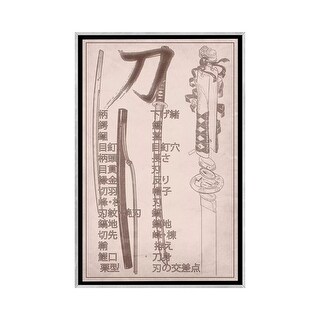 刀
柄 下げ緒
鍔
目釘 目釘穴
柄頭 長さ
目貫 刃
縁金 反り
切羽 帽子
刃紋・焼刃
鎬地
切先
鞘 拵え
鯉口 刀身
栗型 刃の交差点